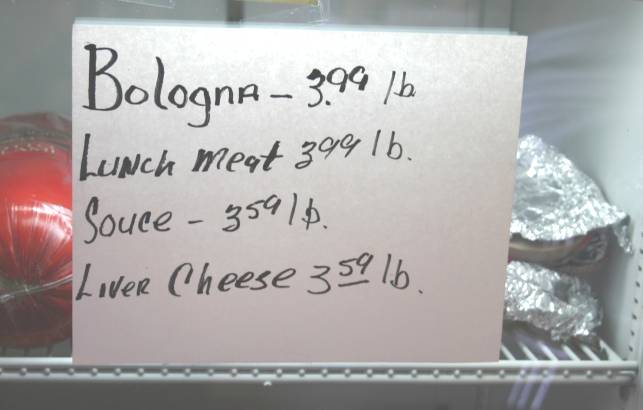 Bologna - 3.99 lb
Lunch meat 399 lb.
Souce - 359 lb.
Liver Cheese 359 lb.